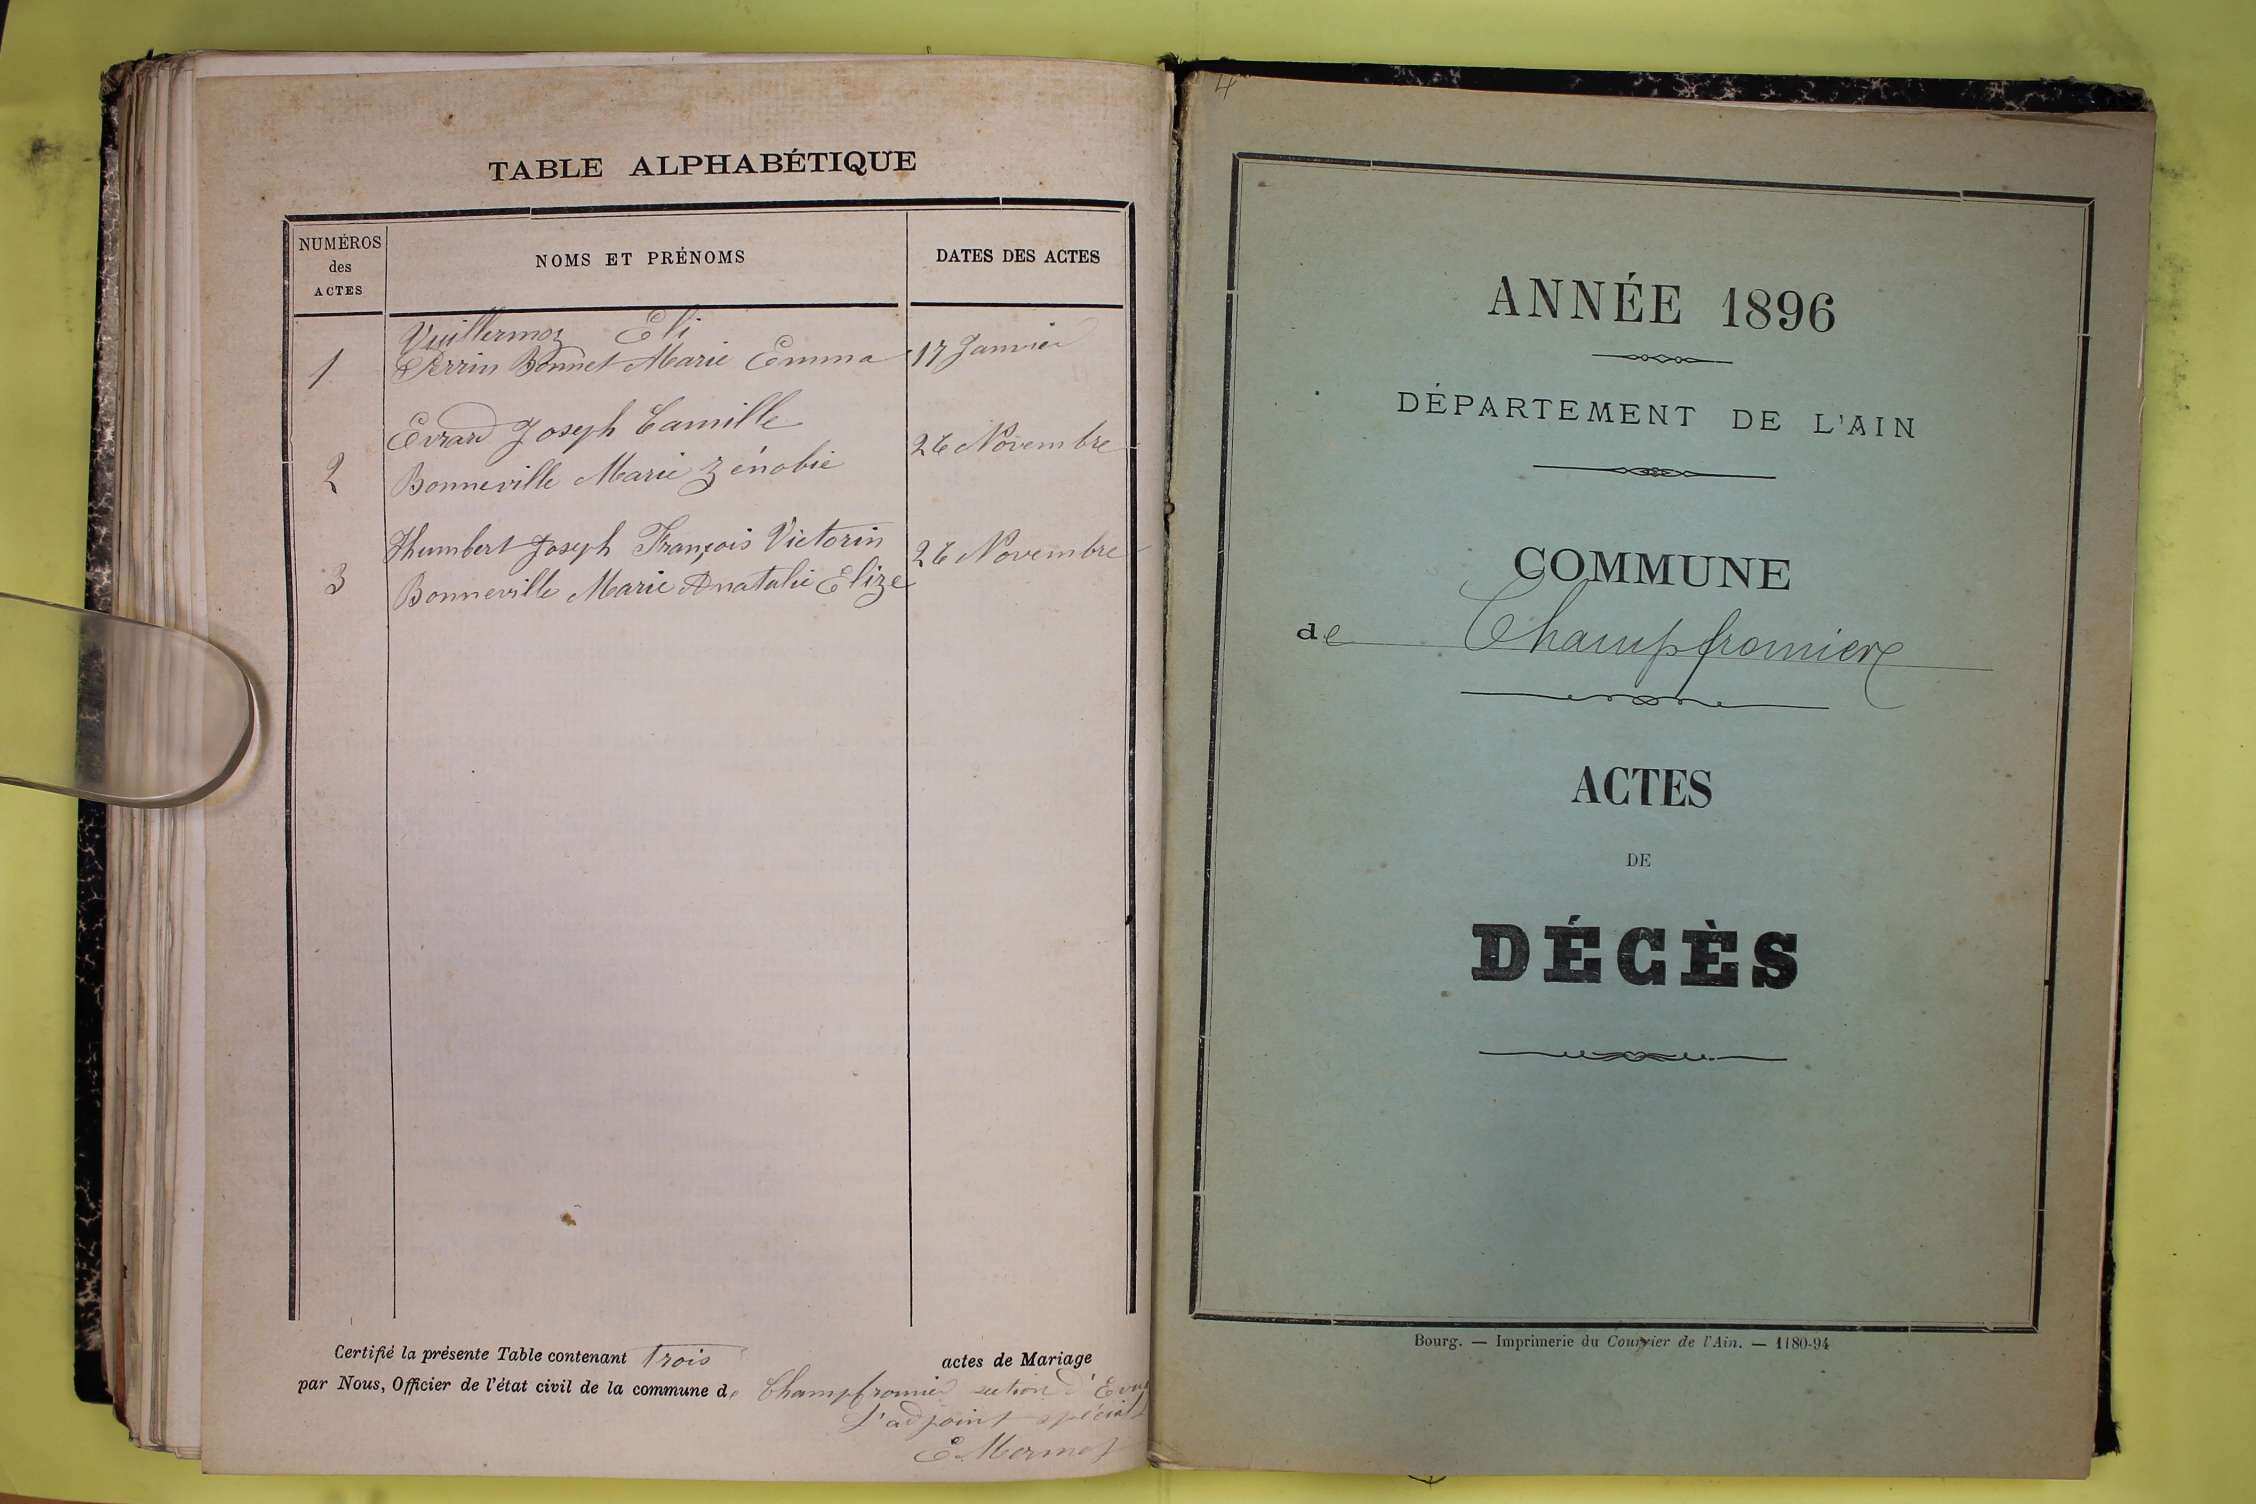 TABLE ALPHABÉTIQUE
NUMÉROS
des
ACTES
NOMS ET PRÉNOMS
DATES DES ACTES
Vuillermoz Eli
1 Perrin Bonnet Marie Emma 17 Janvier
Evrard Joseph Camille
26 Novembre
2 Bonneville Marie Zénobie
Humbert Joseph François Victorin 26 Novembre
3 Bonneville Marie Anatalie Elize
Certifié la présente Table contenant trois actes de Mariage
par Nous, Officier de l'état civil de la commune de Champfromier section d'
L'adjoint spécial
E Mermet
4
ANNÉE 1896
DÉPARTEMENT DE L'AIN
COMMUNE
de Champfromier
ACTES
DE
DÉCÈS
Bourg. — Imprimerie du Courrier de l'Ain. — 1180-94